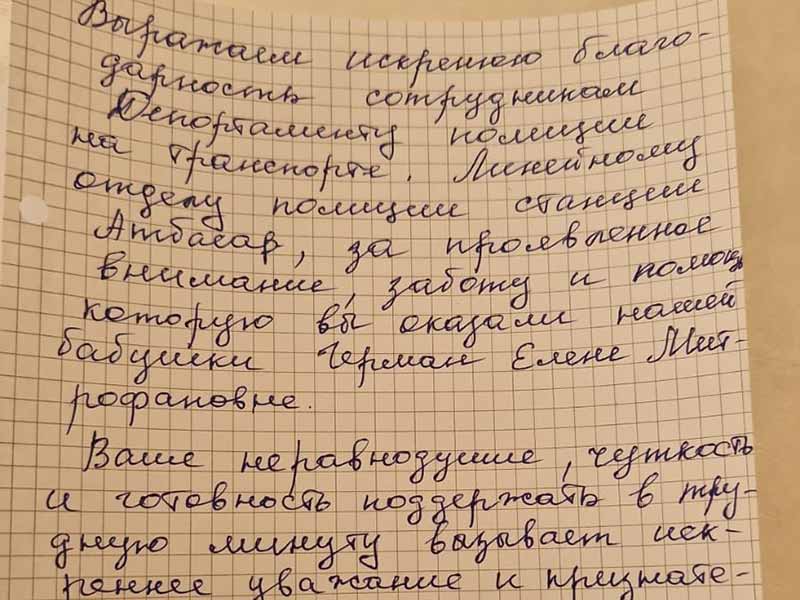 Выражаем искренюю благо-
дарность сотрудникам
Депортаменту полиции
на транспорте. Линейному
отделу полиции станции
Атбасар, за проявленное
внимание, заботу и помощь
которую вы оказали нашей
бабушки Герман Елене Мит-
рофановне.
Ваше неравнодушие, чуткость
и готовность поддержать в тру-
дную минуту вызывает иск-
реннее уважание и признате-